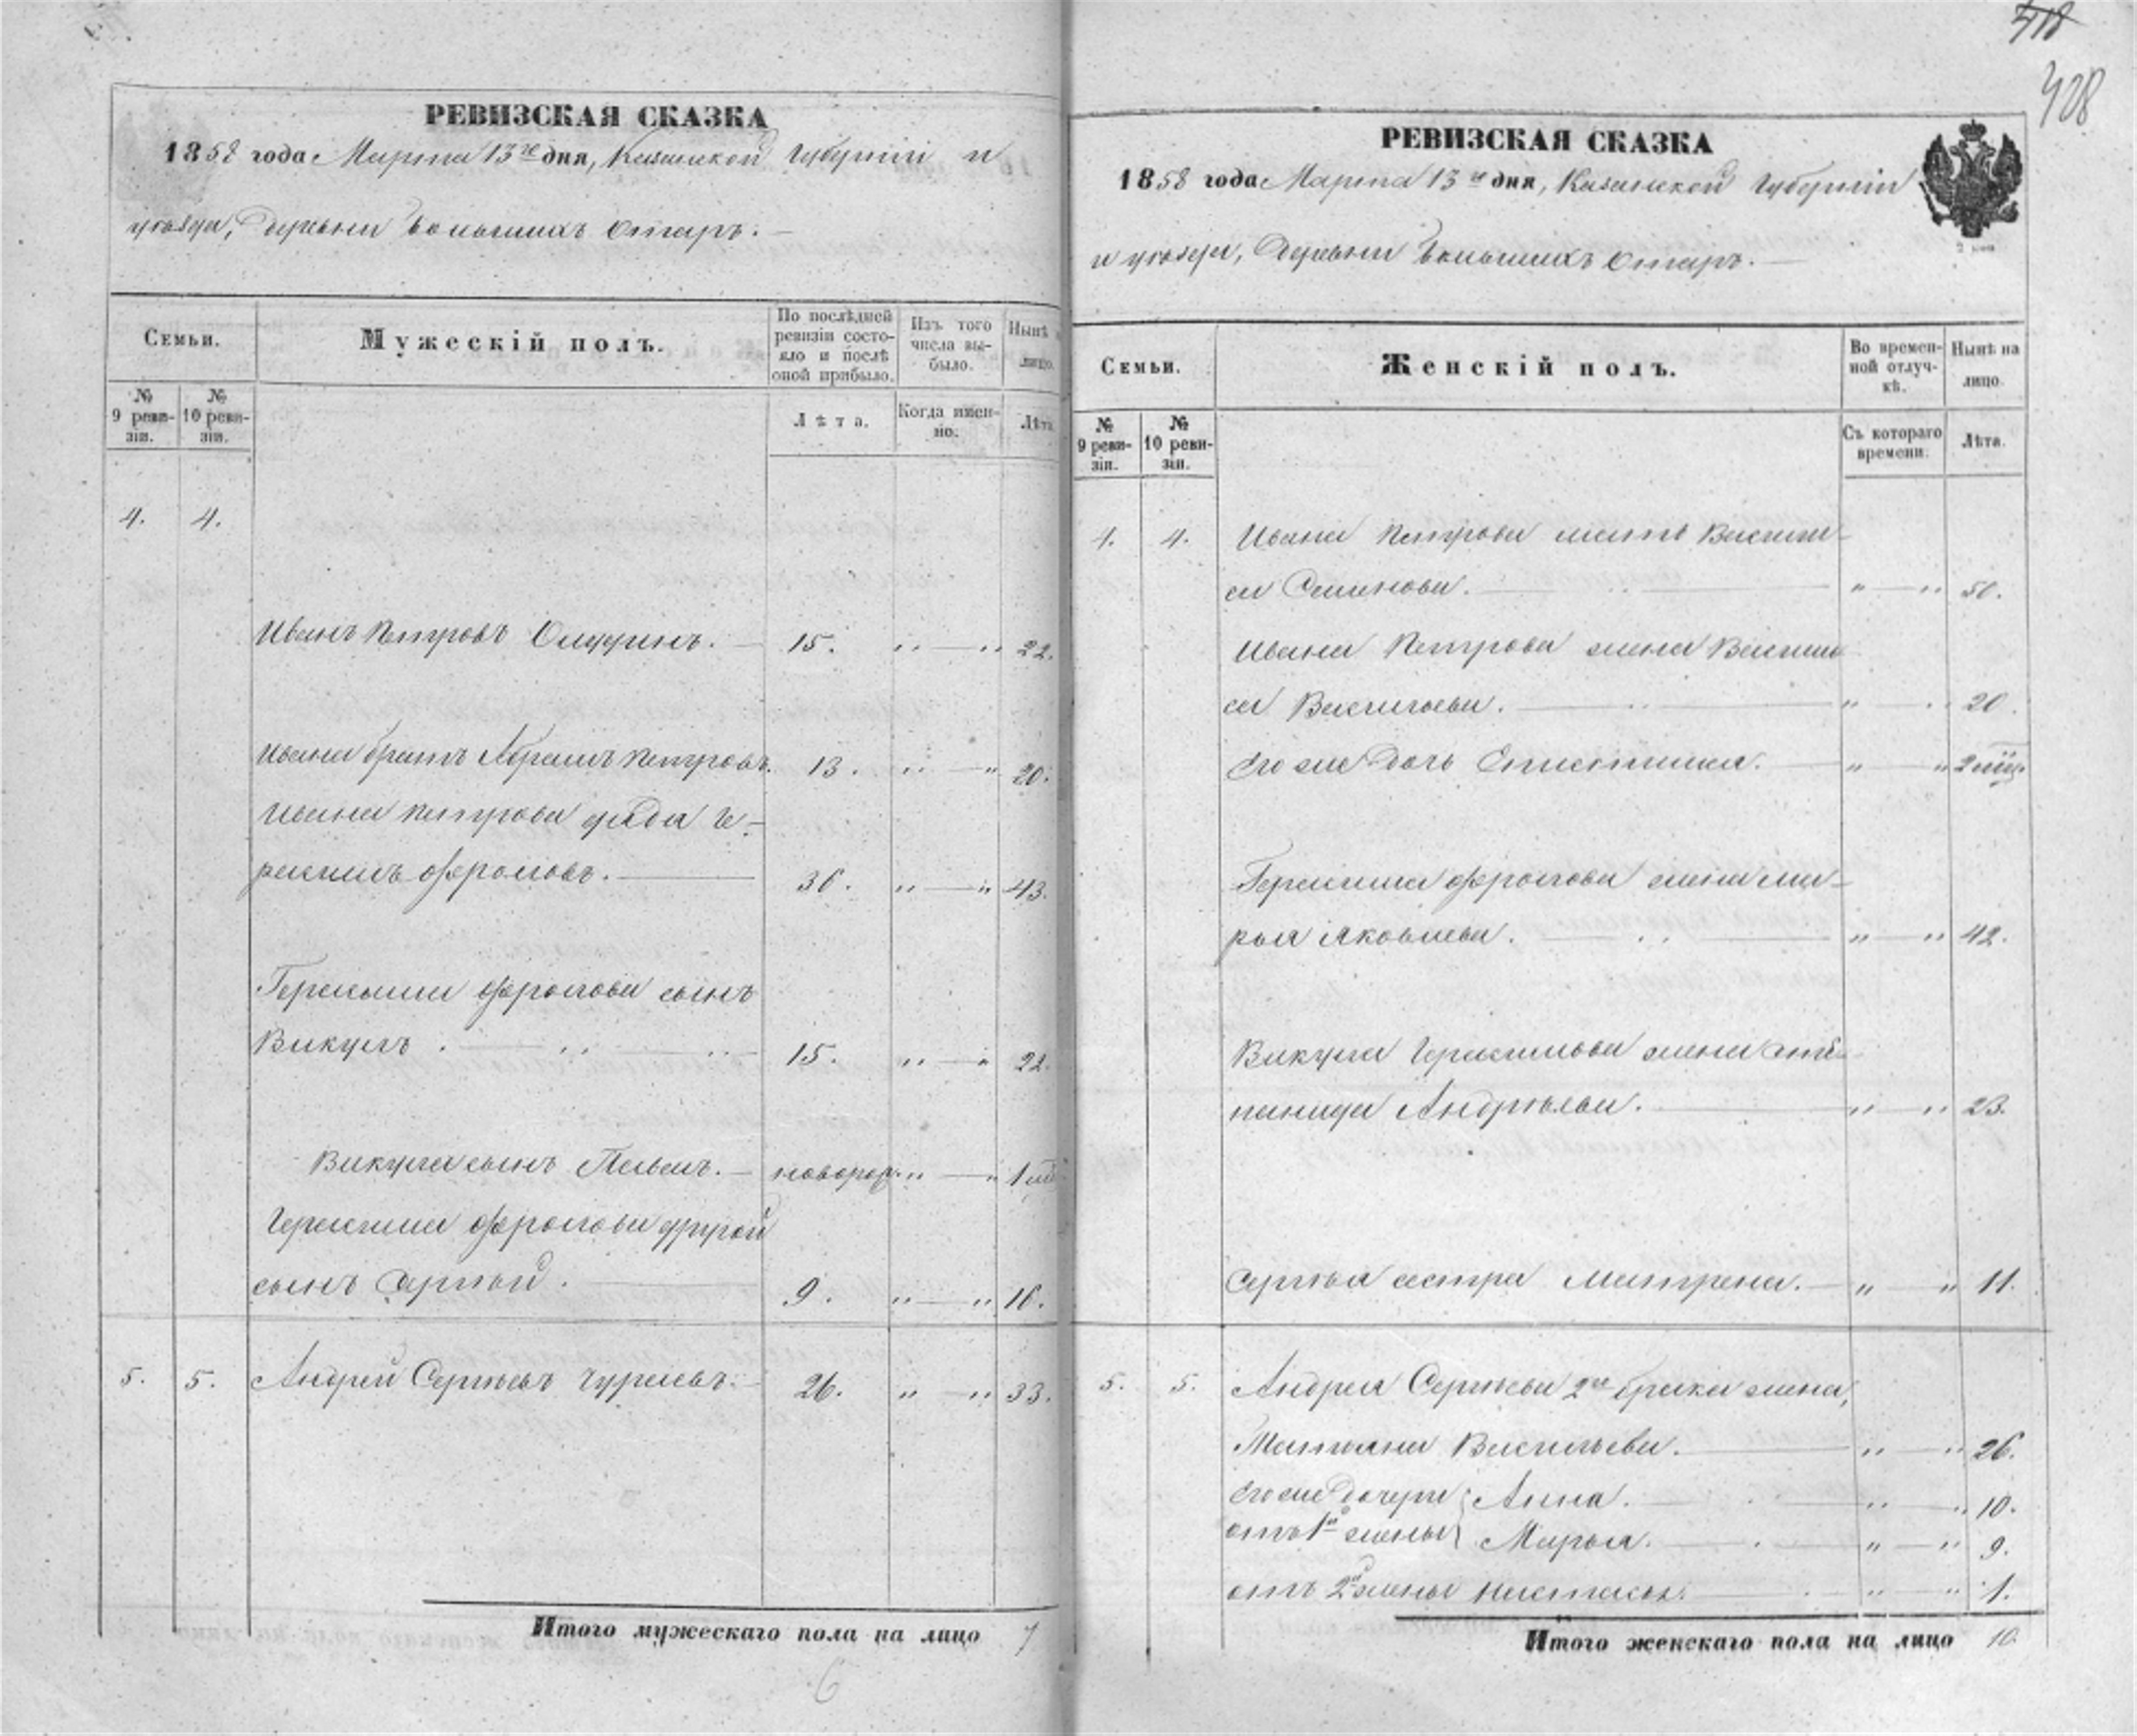 РЕВИЗСКАЯ СКАЗКА
1858 года Марта 13го дня, Казанской Губернiи и
уѣзда, Деревни Большихъ Отаръ.
Семьи.
Мужескiй полъ.
По послѣдней ревизiи состояло и послѣ оной прибыло.
Изъ того числа выбыло.
Нынѣ лицо.
№ 9 ревизiи.
№ 10 ревизiи.
Лѣта.
Когда именно.
Лѣта
4. 4.
Иванъ Петровъ 15. 22.
Ивана братъ Абрамъ Петровъ. 13. 20.
Ивана Петрова дядя Ге-
расимъ Фроловъ. 36. 43.
Герасима Фролова сынъ
Викулъ. 15. 22.
Викула сынъ Павелъ. новорож. 1
Герасима Фролова другой
сынъ Сергѣй. 9. 16.
5. 5. Андрей Сергѣевъ Чураевъ. 26. 33.
Итого мужескаго пола на лицо 7
6
418
408
РЕВИЗСКАЯ СКАЗКА
1858 года Марта 13го дня, Казанской Губернiи
и уѣзда, Деревни Большихъ Отаръ.
2 коп
Семьи.
Женскiй полъ.
Во временной отлучкѣ.
Нынѣ на лицо.
№ 9 ревизiи.
№ 10 ревизiи.
Съ котораго времени.
Лѣта.
4. 4. Ивана Петрова мать Васили-
са Семенова. 50.
Ивана Петрова жена Васили-
са Васильева. 20.
Его же дочь 2
Герасима Фролова жена Ма-
рья Яковлева. 42.
Викула Герасимова жена Сте-
панида Андрѣева. 23.
Сергѣя сестра Матрена. 11.
5. 5. Андрея Сергѣева 2го брака жена,
Татьяна Васильева. 26.
Его же дочери Анна. 10.
отъ 1й жены Марья. 9.
отъ 2й жены Настасья. 1.
Итого женскаго пола на лицо 10.